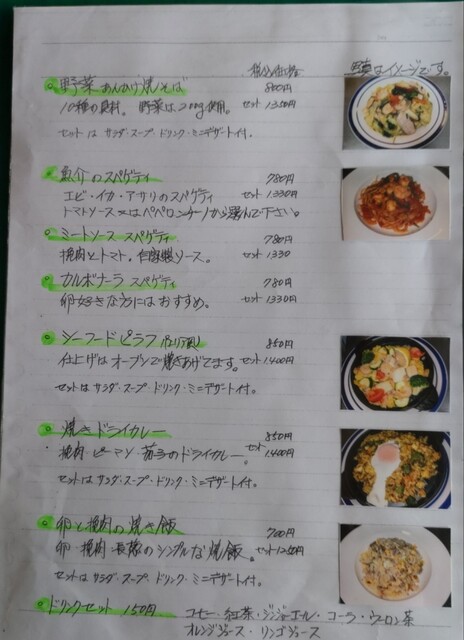 税込価格 写真はイメージです。
野菜あんかけ焼そば 800円
10種の具材。野菜は200g使用。セット1350円
セットは サラダ・スープ・ドリンク・ミニデザート付。
魚介のスペゲティ 780円
エビ・イカ・アサリのスペゲティ セット1330円
トマトソース又はペペロンチーノから選んで下さい。
ミートソーススペゲティ 780円
挽肉とトマト。自家製ソース。 セット1330
カルボナーラスペゲティ 780円
卵好きな方にはおすすめ。 セット1330円
シーフードピラフ 850円
仕上げはオーブンで焼きあげてます。セット1400円
セットは サラダ・スープ・ドリンク・ミニデザート付。
焼きドライカレー 850円
挽肉・ピーマン・茄子のドライカレー。セット1,400円
セットは サラダ・スープ・ドリンク・ミニデザート付。
卵と挽肉の焼き飯 700円
卵・挽肉・長葱のシンプルな焼飯。セット1250円
セットは サラダ・スープ・ドリンク・ミニデザート付。
ドリンクセット 150円 コーヒー・紅茶・ジンジャーエール・コーラ・ウーロン茶
オレンジジュース・リンゴジュース